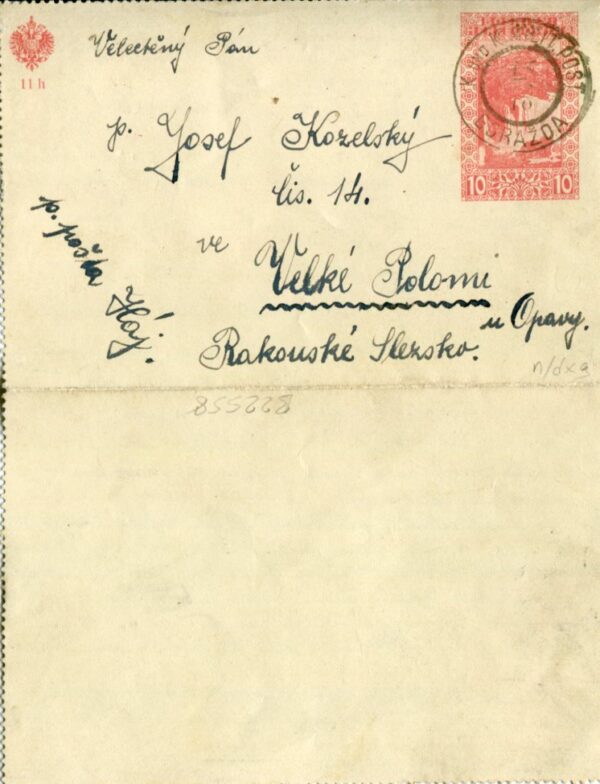 11 h
Velectěný Pán
p. Josef Kozelský
čis. 14.
ve Velké Polomi
u Opavy.
Rakouské Slezsko.
p. pošta
Háj.
K. UND K. MILIT. POST
GORAZDA
10 10
n/dxa
855228